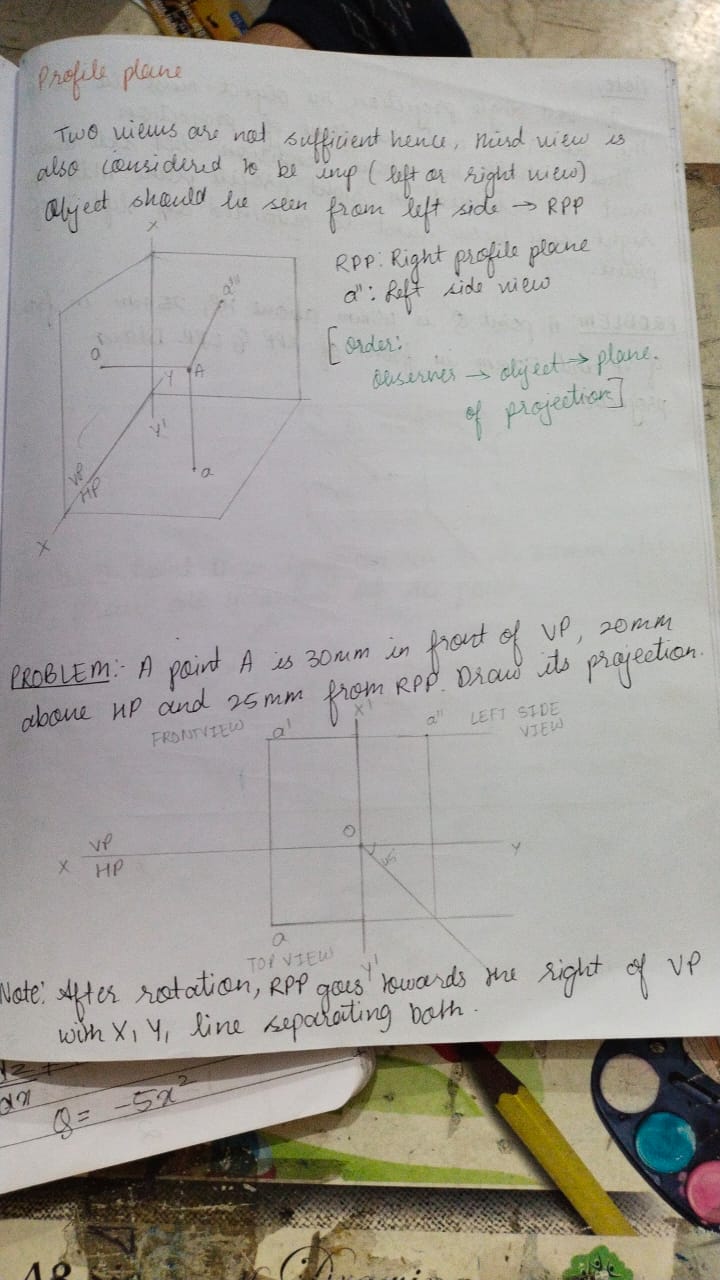 Profile plane
Two views are not sufficient hence, third view is
also considered to be imp (left or right view)
Object should be seen from left side → RPP
X
RPP: Right profile plane
a": Left side view
[Order:
Observer → object → plane.
of projection]
a'
a"
Y
A
Y'
a
VP
HP
X
PROBLEM:- A point A is 30mm in front of VP, 20mm
above HP and 25mm from RPP. Draw its projection.
FRONTVIEW
a'
X'
a"
LEFT SIDE
VIEW
O
VP
X
HP
45
Y
a
TOP VIEW
Y'
Note: After rotation, RPP goes towards the right of VP
with X₁ Y₁ line separating both.
dx
Q = -5x²